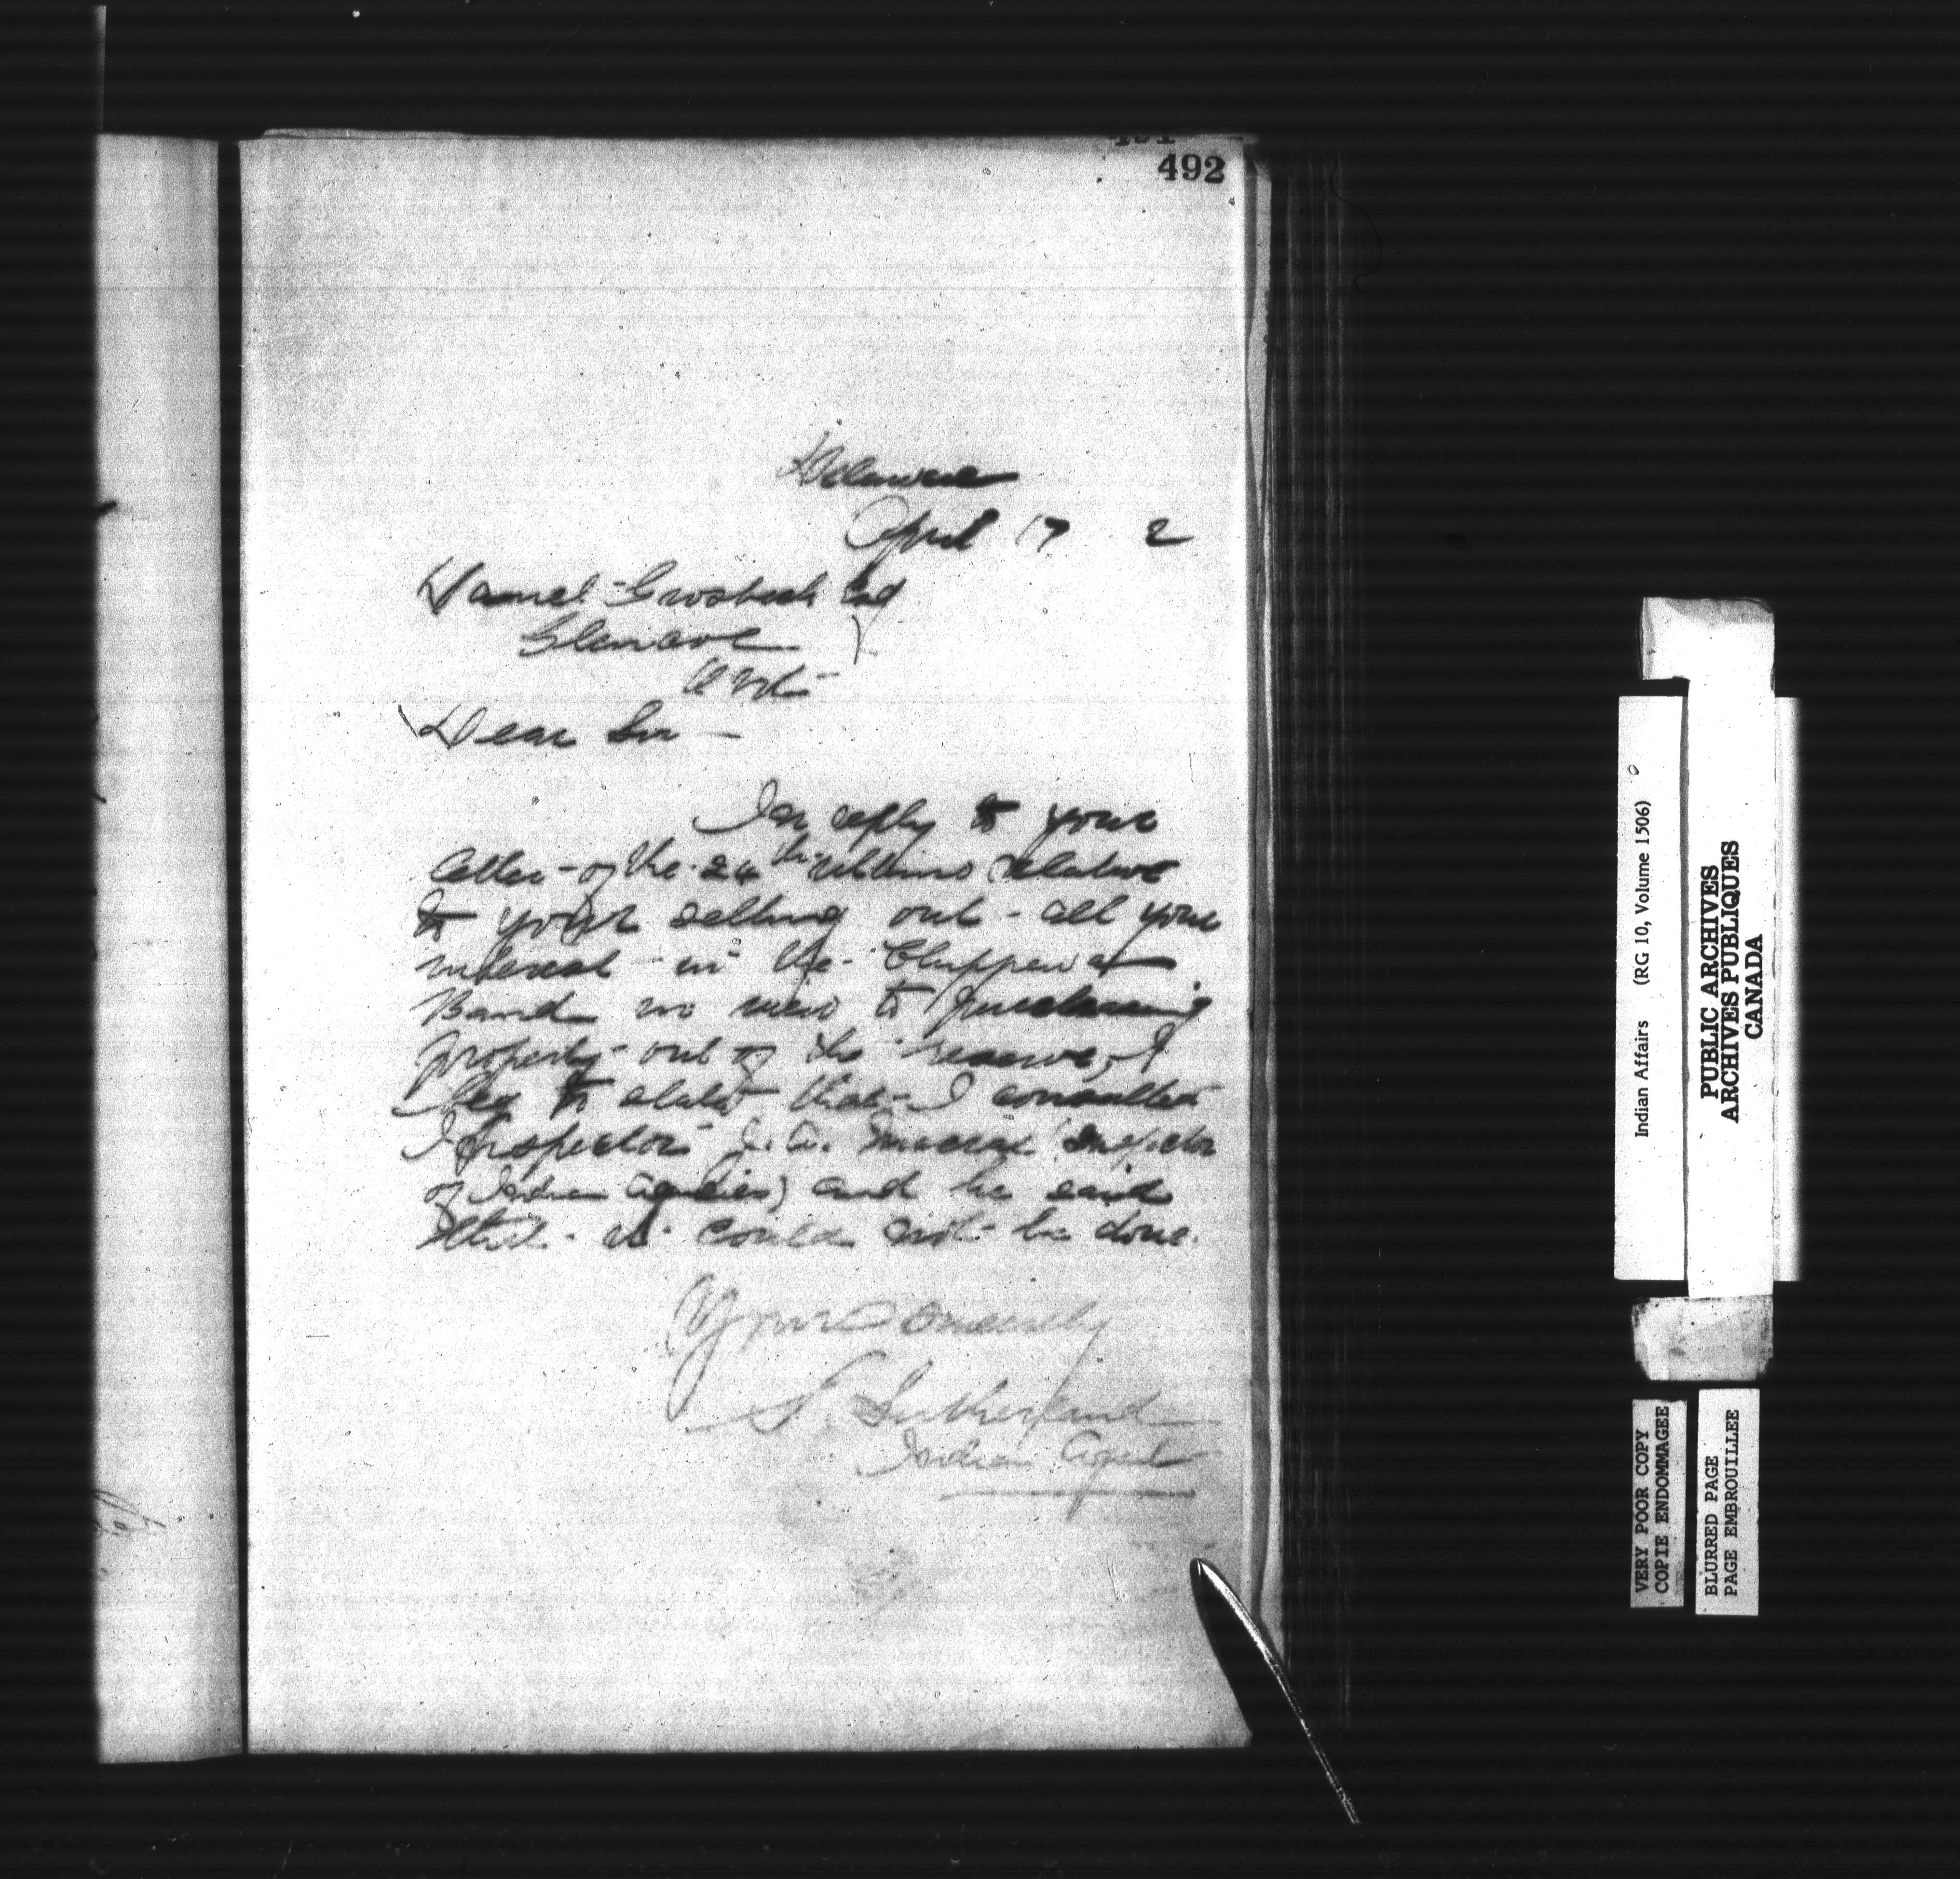 492
Delaware
April 17 2
Daniel Grosbeck Esq
Glencoe
Ont
Dear Sir
In reply to your
letter of the 24th ultimo relative
to your selling out all your
interest in the Chippewa
Band in view to purchasing
property out of the reserve, I
beg to state that I consulted
Inspector J. A. Macrae Inspector
of Indian Agencies) and he said
that it could not be done.
Yours Sincerely
S. Sutherland
Indian Agent
Indian Affairs (RG 10, Volume 1506)
PUBLIC ARCHIVES
ARCHIVES PUBLIQUES
CANADA
VERY POOR COPY
COPIE ENDOMMAGEE
BLURRED PAGE
PAGE EMBROUILLEE